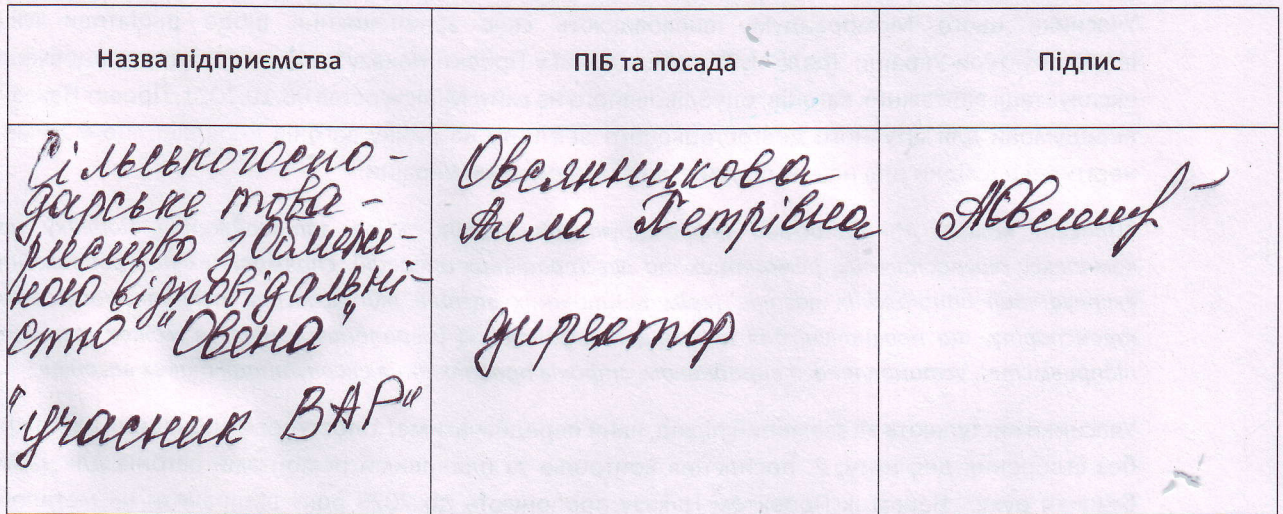 Назва підприємства
ПІБ та посада
Підпис
Сільськогоспо-
дарське това-
риство з обмеже-
ною відповідальні-
стю "Овена"
"учасник ВАР"
Овсяннікова
Алла Петрівна
директор